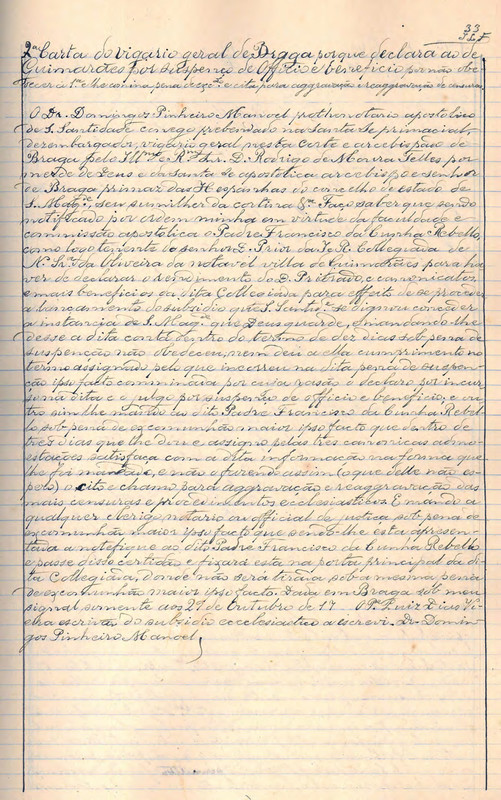 33
2ª Carta do vigario geral de Braga porque declara ao de
Guimarães por suspenço de officio e beneficio por não obe-
decer á 1ª e lhe comina pena de exc. e cita para aggravação e reaggravação de censuras
O Dr. Domingos Pinheiro Manoel, prothonotario apostolico
de S. Santidade conego prebendado na Santa Sé primacial,
dezembargador, vigario geral nesta corte e arcebispado de
Braga pelo Illmo e Rmo Snr. D. Rodrigo de Moura Telles por
mercê de Deus e da Santa Sé apostolica arcebispo e senhor
de Braga primaz das Hespanhas do concelho de estado de
S. Mage, seu sumilher da cortina &ª. Faço saber que sendo
notificado por ordem minha em virtude da faculdade e
commissão apostolica o Padre Francisco da Cunha Rebello,
como logotenente do senhor D. Prior da I. R. Collegiada de
N. Srª da Oliveira da notavel villa de Guimarães para ha-
ver de declarar o rendimento do D. Priorado, e conicatos
e mais beneficios da dita Collegiada para effeito de se proceder
a lançamento do subsidio que S. Santide. se dignou conceder
a instancia de S. Mage. que Deus guarde, e mandando-lhe
desse a dita conta dentro do termo de dez dias sob pena de
suspenção não obedeceu, nem deu a ella cumprimento no
termo assignado pelo que encorreu na dita pena de suspen-
ção ipso facto comminada por cuja rasão o declaro por incur-
so na dita e o julgo por suspenso de officio e beneficio, e ou-
tro sim lhe mando ao dito Padre Francisco da Cunha Rebel-
lo sob pena de excomunhão maior ipso facto que dentro de
tres dias que lhe dou e assigno pelas tres canonicas admo-
estações satisfaça com a dita informação na forma que
lhe foi mandado, e não o fazendo assim (o que delle não es-
pero) o cito e chamo para aggravação e reaggravação das
mais censuras e procedimentos ecclesiasticos. E mando a
qualquer clerigo notario ou official de justiça sob pena de
excomunhão maior ipso facto que sendo-lhe esta apresen-
tada a notefique ao dito Padre Francisco da Cunha Rebello
e passe disso certidão e fixará esta na porta principal da di-
ta Collegiada, donde não será tirada sob a mesma pena
de excomunhão maior ipso facto. Dada em Braga sob meu
signal somente aos 27 de Outubro de 17 O Pe Ruiz Dias Vi-
elha escrivão do subsidio ecclesiastico a escrevi. Dr. Domin-
gos Pinheiro Manoel,